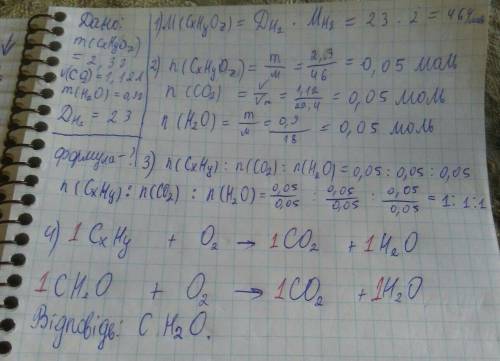 Дано:
m(CxHyOz)
= 2,3г
V(CO) = 1,12л
m(H₂O) = 0,9г
D H₂ = 23
формула - ?
1) M(CxHyOz) = D H₂ · M H₂ = 23 · 2 = 46 г/моль
2) n(CxHyOz) = m/M = 2,3/46 = 0,05 моль
n(CO₂) = V/Vm = 1,12/22,4 = 0,05 моль
n(H₂O) = m/M = 0,9/18 = 0,05 моль
3) n(CxHy) : n(CO₂) : n(H₂O) = 0,05 : 0,05 : 0,05
n(CxHy) : n(CO₂) : n(H₂O) = 0,05/0,05 : 0,05/0,05 : 0,05/0,05 = 1:1:1
4) 1CxHy + O₂ → 1CO₂ + 1H₂O
1CH₂O + O₂ → 1CO₂ + 1H₂O
Відповідь: CH₂O.